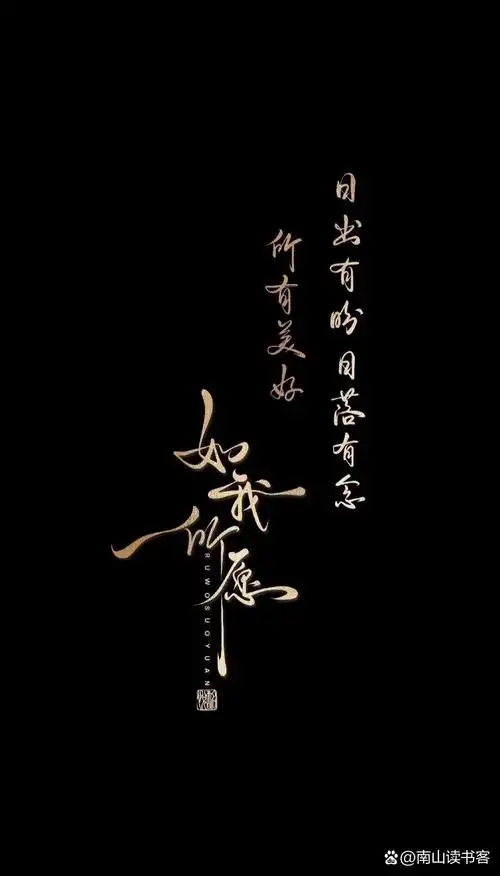 日出有盼日落有念
所有美好
如我所愿
RUWOSUOYUAN
@南山读书客